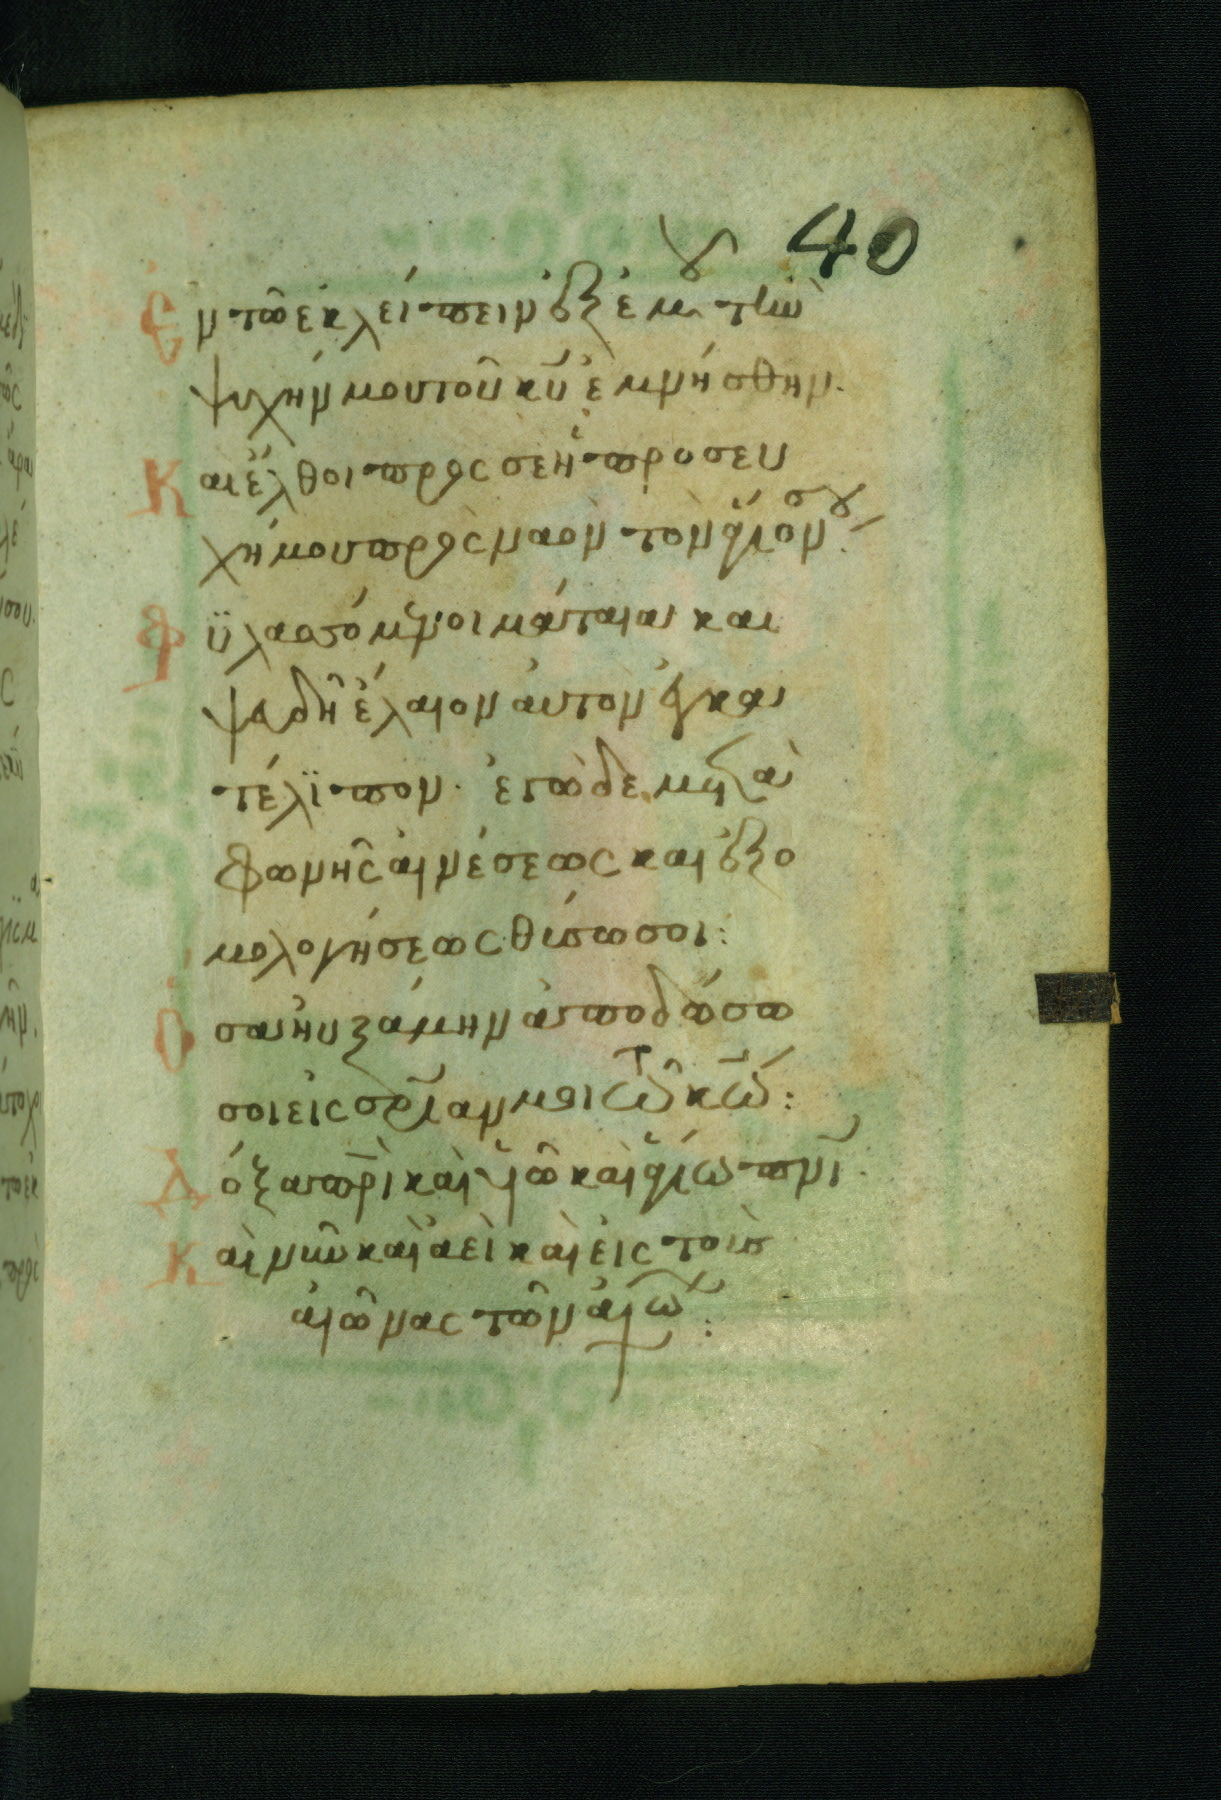 40
Ἐν τῶ ἐκλείπειν ἐξ ἐμοῦ τὴν
ψυχήν μου τοῦ κῦ ἐμνήσθην.
Καὶ ἔλθοι πρὸς σὲ ἡ προσευ
χή μου πρὸς ναὸν τὸν ἅγιόν σου
Φυλασσόμενοι μάταια καὶ
ψευδῆ ἔλαιον αὐτῶν ἐγκα
τέλϊπον. ἐγὼ δὲ μετὰ
φωνῆς αἰνέσεως καὶ ἐξο
μολογήσεως θύσω σοι:
Ὅσα ηὐξάμην ἀποδώσω
σοι εἰς σρίαν μου τῶ κῶ:
Δόξα πρὶ καὶ υἱῶ καὶ ἁγίω πνι
Καὶ νῦν καὶ ἀεὶ καὶ εἰς τοὺς
αἰῶνας τῶν αἰώ: